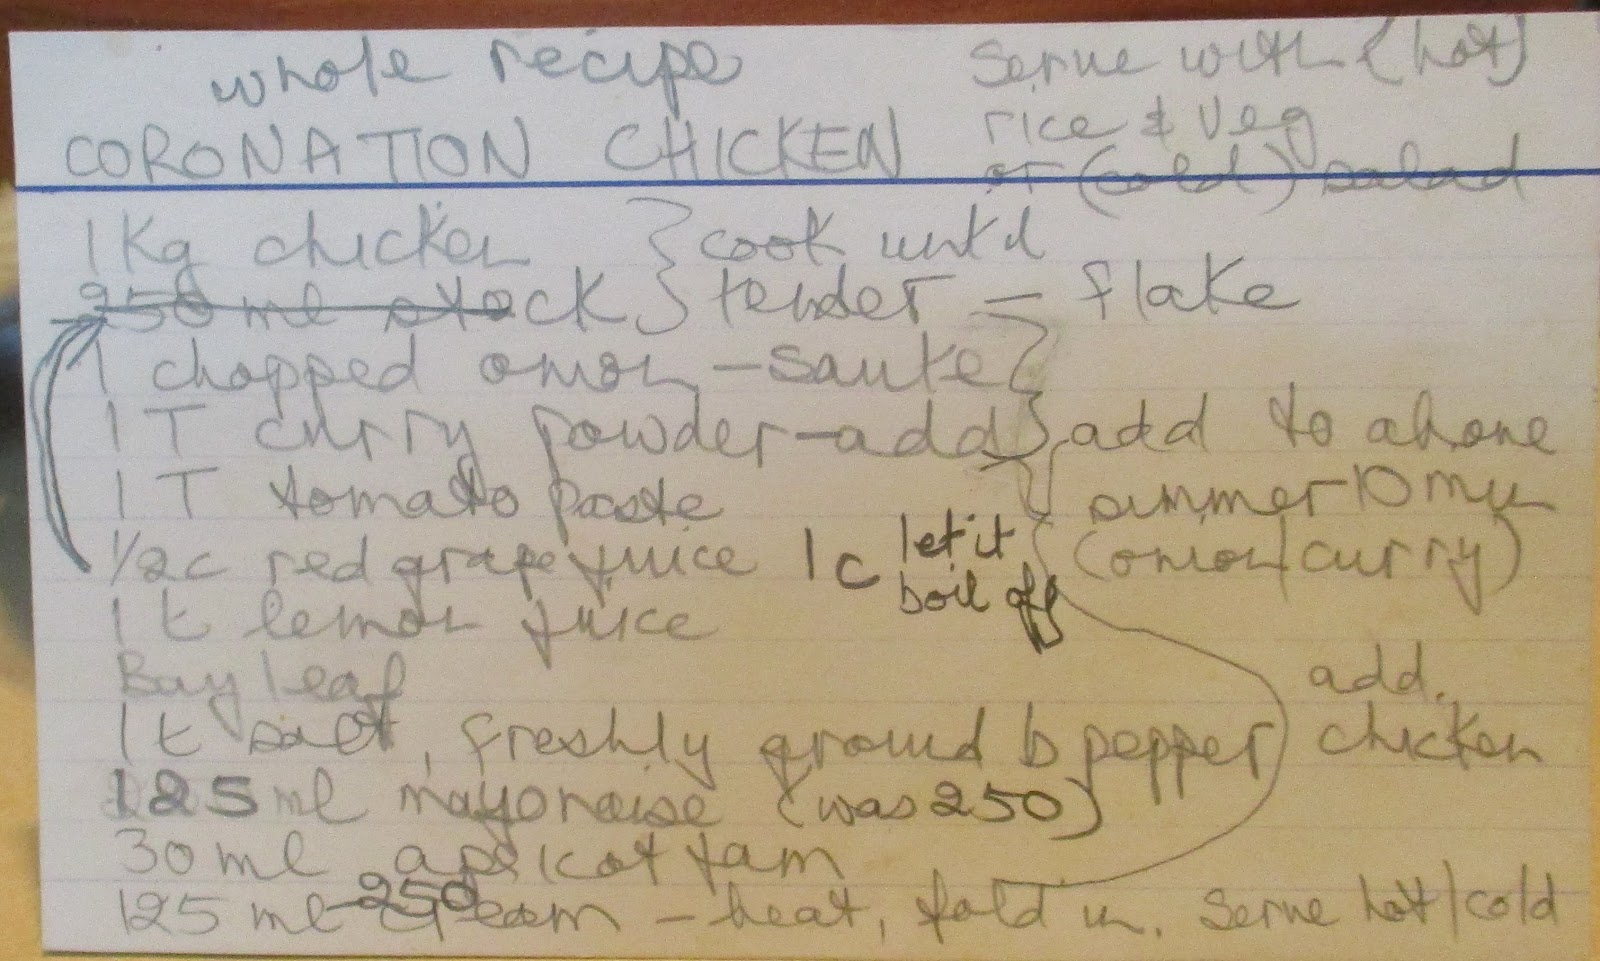 whole recipe
CORONATION CHICKEN
Serve with (hot)
rice & Veg
or (cold) salad
1 Kg chicken } cook until
250 ml stock } tender - flake
1 chopped onion - saute
1 T curry powder - add } add to above
1 T tomato paste simmer 10 min
1/2 c red grape juice 1 c let it boil off (onion/curry)
1 t lemon juice
Bay leaf add
1 t salt, freshly ground b pepper chicken
125 ml mayonaise (was 250)
30 ml apricot jam
125 ml - 250 cream - heat, fold in. Serve hot/cold